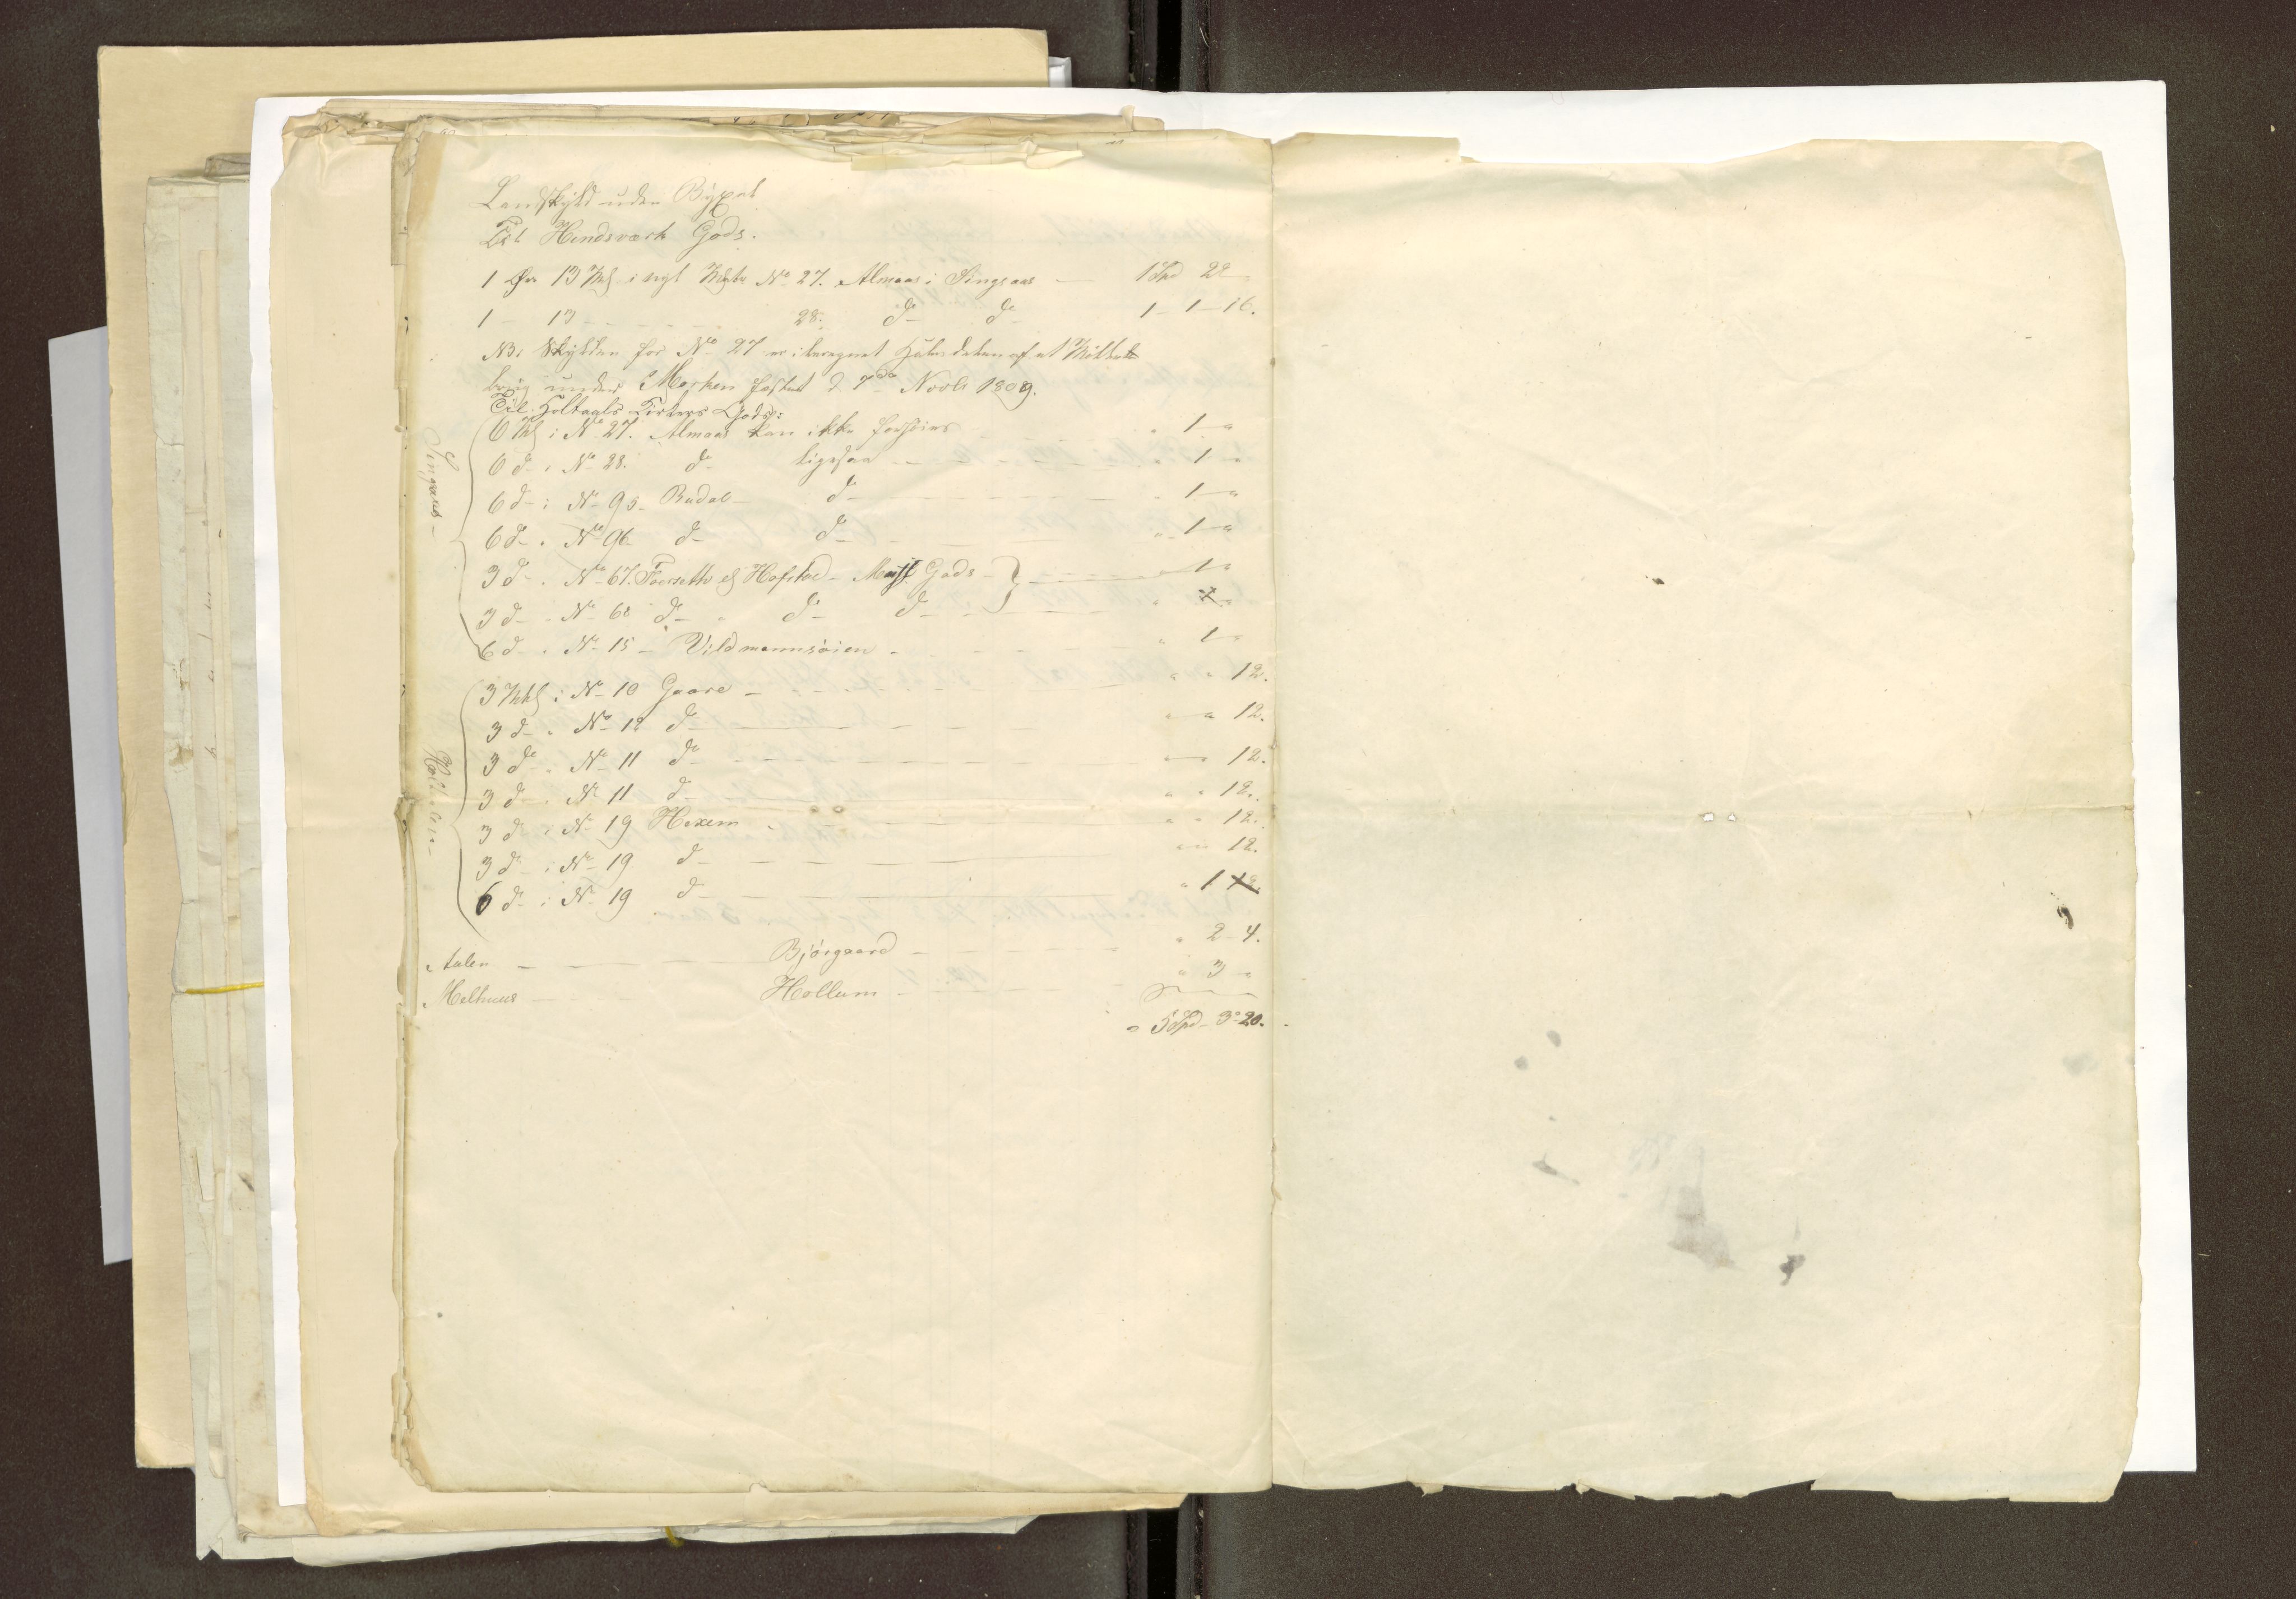 Landskyld uden Býxel
Til Hindsværk Gods.
1 Øre 13 Mkl i nyt Matr No 27. Almaas i Singsaas — 1 Spd 22
1 - 13 - - - - - 28. do do 1 - 1 - 16.
NB: Skylden for No 27 er iberegnet af et
brug under Morken fæstet d 7de Novbr 1809.
Til Holtaals Kirkers Gods:
Singsaas -
6 Mkl i No 27. Almaas kan ikke " 1 "
6 do i No 28. do ligesaa — " 1 "
6 do i No 95 - Budal - do — " 1 "
6 do " No 96 do do " 1 "
3 do " No 67. Foersetth og Hofstad - Gods - } — 1 "
3 do " No 68 do " do do — "
6 do " No 15 - Vildmannsøien - " 1 "
Holtaalen -
3 Mkl i No 10 Gaare - " " 12.
3 do " No 12 do — " " 12.
3 do i No 11 do - " " 12.
3 do " No 11 do — " " 12.
3 do i No 19 Hexem — " " 12.
3 do i No 19 do — " " 12.
6 do i No 19 do — " 1 12.
Aalen — Bjørgaard — " 2 - 4.
Melhuus — Hollum — " 3 "
5 Spd - 3 - 20.